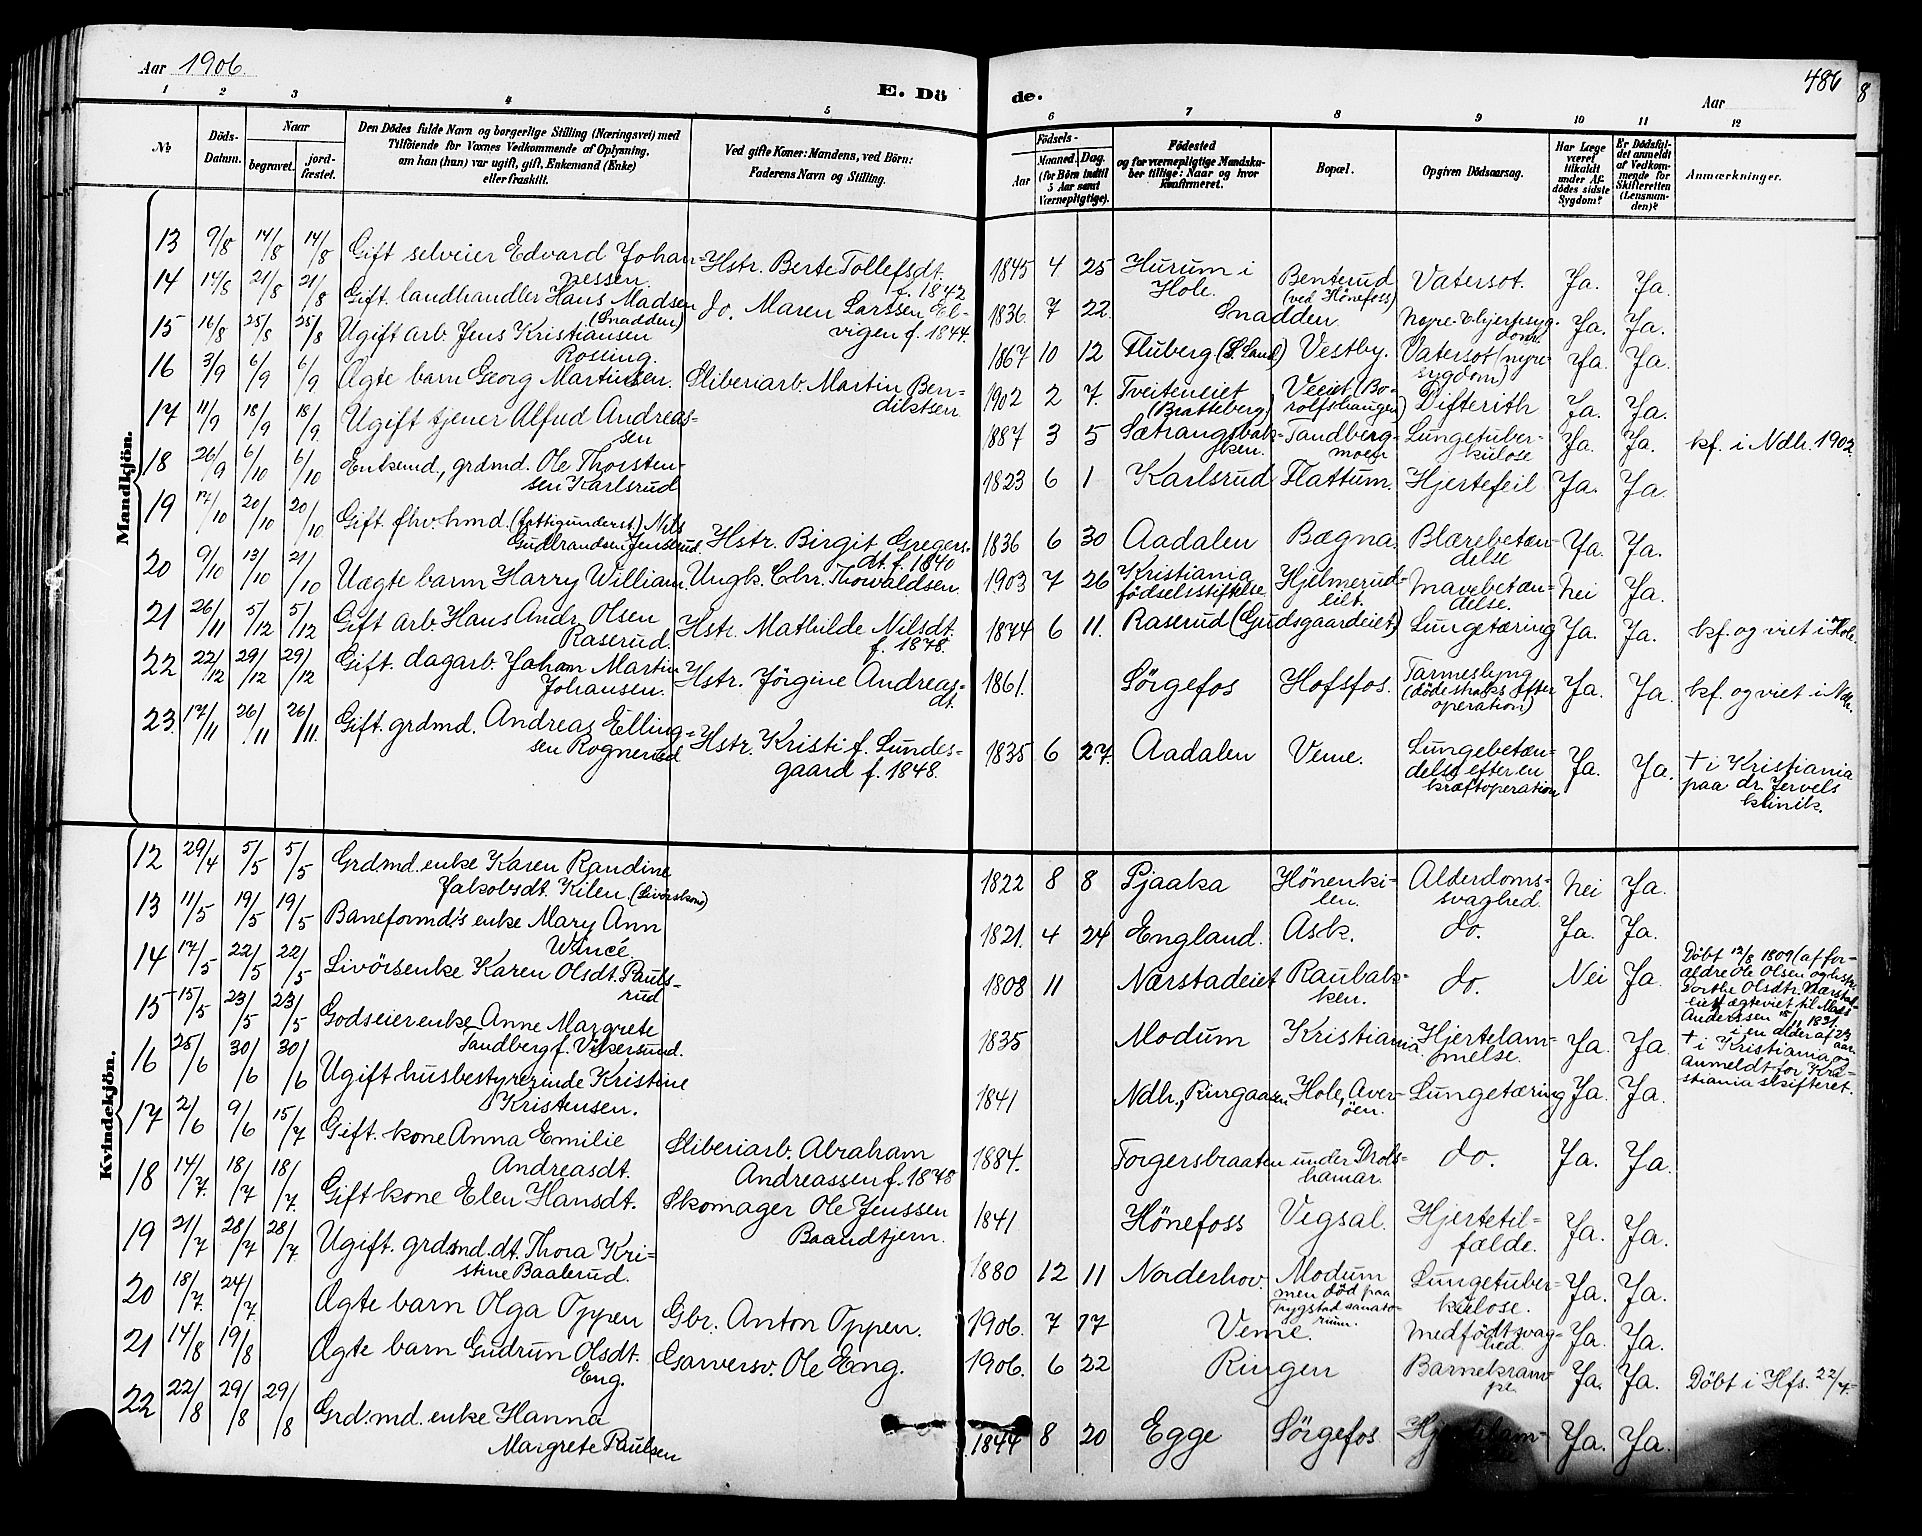 Aar 1906.
E. Döde.
Aar
486
8
1 2 3 4 5 6 7 8 9 10 11 12
№
Döds-
Datum.
Naar
begravet.
jord-
fæstet.
Den Dödes fulde Navn og borgerlige Stilling (Næringsvei) med
Tilföiende for Voxnes Vedkommende af Oplysning,
om han (hun) var ugift, gift, Enkemand (Enke)
eller fraskilt.
Ved gifte Koner: Mandens, ved Börn:
Faderens Navn og Stilling.
Födsels-
Aar
Maaned. Dag.
(for Börn indtil
5 Aar samt
Værnepligtige).
Födested
og for værnepligtige Mandska-
ber tillige: Naar og hvor
konfirmeret.
Bopæl.
Opgiven Dödsaarsag.
Har Læge
været
tilkaldt
under Af-
dödes sidste
Sygdom?
Er Dödsfal-
det anmeldt
af Vedkom-
mende for
Skifteretten
(Lensman-
den)?
Anmærkninger.
Mandkjön.
13 9/8 14/8 14/8 Gift selveier Edvard Johan-
nessen. Hstr. Berte Tollefsdt.
f. 1842 1845 4 25 Hurum i
Hole. Benterud
(ved Hönefoss) Vatersot. Ja. Ja.
14 14/8 21/8 21/8 Gift. landhandler Hans Madsen
(Snadden) Do. Maren Larssen El-
vigen f. 1844. 1836 7 22. Snadden Nyre- & hjertesyg-
dom Ja. Ja.
15 16/8 25/8 25/8 Ugift arb. Jens Kristiansen
Rossing. 1867 10 12 Fluberg (S. Land) Vestby. Vatersot (nyre
sygdom) Ja. Ja.
16 3/9 6/9 6/9 Ægte barn Georg Martinsen. Sliberiarb. Martin Ben-
diktsen 1902 2 7. Tveiteneiet
(Bratteberg) Veeiet (Bo-
rolfshaugen) Difterith Ja. Ja.
17 11/9 18/9 18/9. Ugift tjener Alfud Andreas-
sen 1887 3 5 Sætrangsbak-
ken. Tandberg-
moen Lungetuber-
kulose Ja. Ja. kf. i Ndh. 1902
18 26/9 6/10 6/10 Enkemd., grdmd. Ole Thorsten-
sen Karlsrud 1823 6 1 Karlsrud Flattum. Hjertefeil Ja. Ja.
19 17/10 20/10 20/10 Gift. fhv. hmd. (fattigunderst.) Nils
Gudbrandsen Jenserud. Hstr. Birgit Gregers-
dt. f. 1840 1836 6 30 Aadalen Bægna. Blærebetæn-
delse Ja. Ja.
20 9/10 13/10 21/10 Uægte barn Harry William. Ungk. Chr. Thorvaldsen. 1903 7 26 Kristiania
födselsstiftelse Hjelmerud-
eiet. Mavebetæn-
delse. Nei Ja.
21 26/11 5/12 5/12 Gift arb. Hans Andr. Olsen
Raserud. Hstr. Mathilde Nilsdt.
f. 1878. 1874 6 11. Raserud (Gudsgaardeiet) Lungetæring Ja. Ja. kf. og viet i Hole.
22 22/12 29/12 29/12 Gift. dagarb. Johan Martin
Johansen. Hstr. Jörgine Andreas-
dt. 1861. Sörgefos Hofsfos. Tarmeslyng
(döde straks efter
operation) Ja. Ja. kf. og viet i Ndh.
23. 17/11 26/11 26/11. Gift. grdmd. Andreas Elling-
sen Rognerud Hstr. Kristi f. Lundes-
gaard f. 1848. 1835 6 27. Aadalen Veme. Lungebetæn-
delse efter en
kræftoperation Ja. Ja. † i Kristiania
paa dr. Jervels
klinik.
Kvindekjön.
12 29/4 5/5 5/5 Grdmd. enke Karen Randine
Jakobsdt. Kilen. (Livörskone) 1822 8 8 Pjaaka Hönenki-
len. Alderdoms-
svaghed. Nei Ja.
13 11/5 19/5 19/5 Baneformd.'s enke Mary Ann
Wincé 1821. 4 24 England. Ask. do. Ja. Ja.
14 17/5 22/5 22/5 Livörsenke Karen Olsdt. Pauls-
rud 1808 11 Nærstadeiet Raubak-
ken. do. Nei Ja. Döbt 12/8 1809 (af for-
ældre Ole Olsen og hstr.
Dorthe Olsdtr. Nærstad-
eiet) ægteviet til Mads
Anderssen 15/11 1831.
i en alder af 23
aar.
15 15/5 23/5 23/5 Godseierenke Anne Margrete
Tandberg f. Vikersund. 1835 Modum Kristiania. Hjertelam-
melse. Ja. Ja. † i Kristiania og
anmeldt for Kri-
stiania skifteret.
16 25/6 30/6 30/6 Ugift husbestyrerinde Kristine
Kristensen. 1841 Ndh., Ringaasen Hole, Aver-
öen. Lungetæring Ja. Ja.
17 2/6 9/6 15/7 Gift. kone Anna Emilie
Andreasdt. Sliberiarb. Abraham
Andreassen f. 1878 1884. Torgersbraaten under Drols-
hamar. do. Ja. Ja.
18 14/7. 18/7 18/7. Gift kone Elen Hansdt. Skomager Ole Jenssen
Baandtjern. 1841. Hönefoss Vegsal. Hjertetil-
fælde. Ja. Ja.
19 21/7 28/7 28/7 Ugift. grdmd. dt. Thora Kri-
stine Baalerud. 1880 12 11 Norderhov. Modum
men död paa
Trygstad sanato-
rium. Lungetuber-
kulose. Ja. Ja.
20 18/7. 24/7. Ægte barn Olga Oppen Gbr. Anton Oppen. 1906. 7 17 Veme. Medfödt svag-
hed. Ja. Ja.
21 14/8 19/8 Ægte barn Gudrun Olsdt.
Eng. Garversv. Ole Eng. 1906. 6 22 Ringen Barnekram-
pe Ja. Ja. Döbt i Hfs. 22/7.
22 22/8 29/8 29/8 Grd.md. enke Hanna
Margrete Paulsen 1844 8 20 Egge Sörgefos Hjertelam- Ja. Ja.